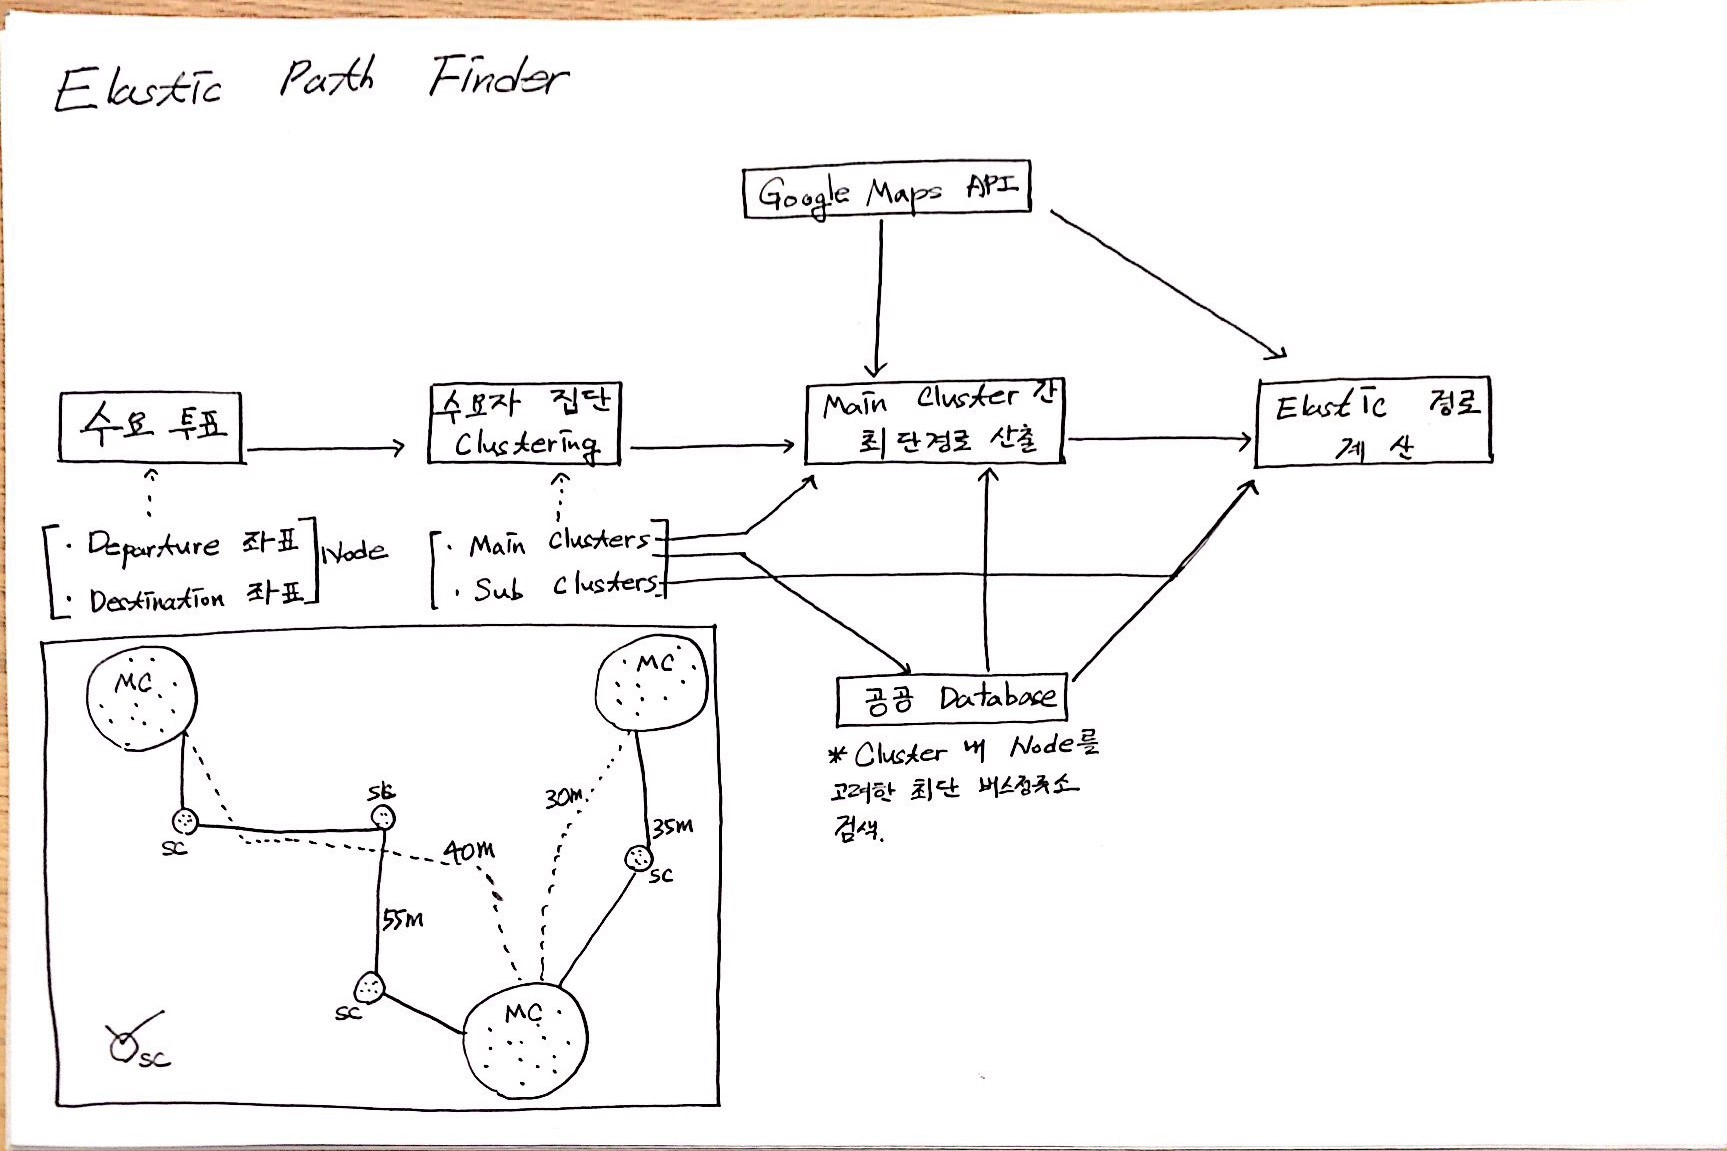 Elastic Path Finder
Google Maps API
수요 투표
수요자 집단
Clustering
Main Cluster 간
최단경로 산출
Elastic 경로
계산
· Departure 좌표
· Destination 좌표
Node
· Main Clusters
· Sub Clusters
공공 Database
* Cluster 내 Node를
고려한 최단 버스정류소
검색.
MC
MC
SC
SC
40m
30m.
35m
SC
55m
SC
MC
SC